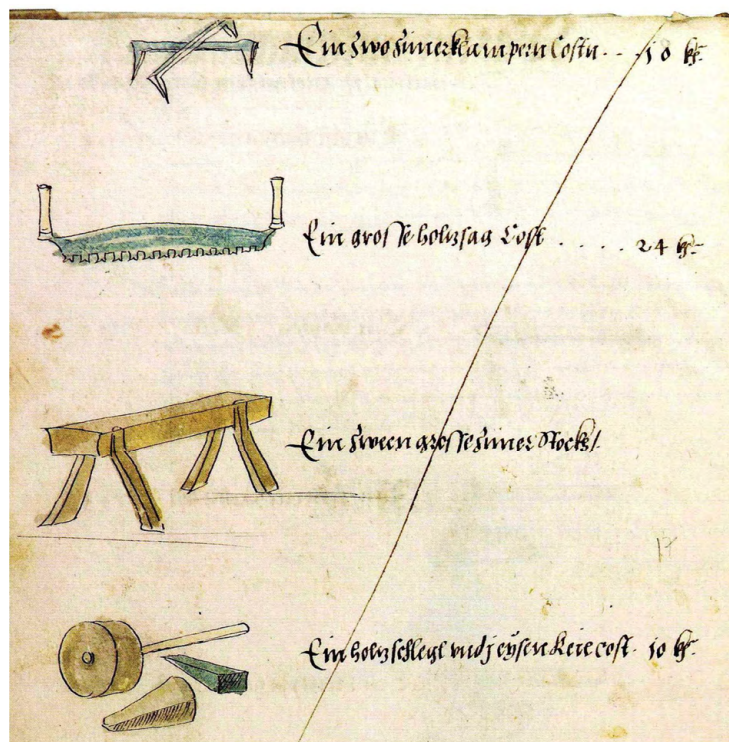 Ein zwo zimerklampern Costn . . 10 kr
Ein grosse holzsag Cost . . . . . 24 kr
Ein zween grosse zimer Röckh/.
17
Ein holzschlegl und j eysen Keie cost . 10 kr